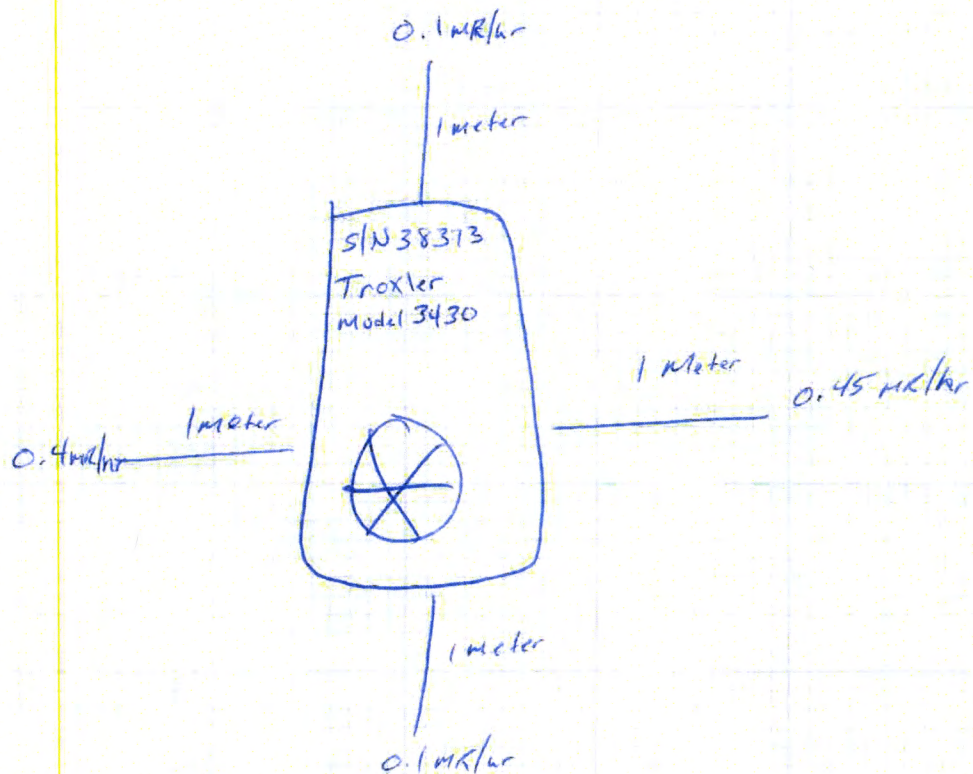 0.1 MR/hr
1 meter
S/N 38373
Troxler
Model 3430
1 Meter
0.45 MR/hr
1 meter
0.4 mR/hr
1 meter
0.1 MR/hr